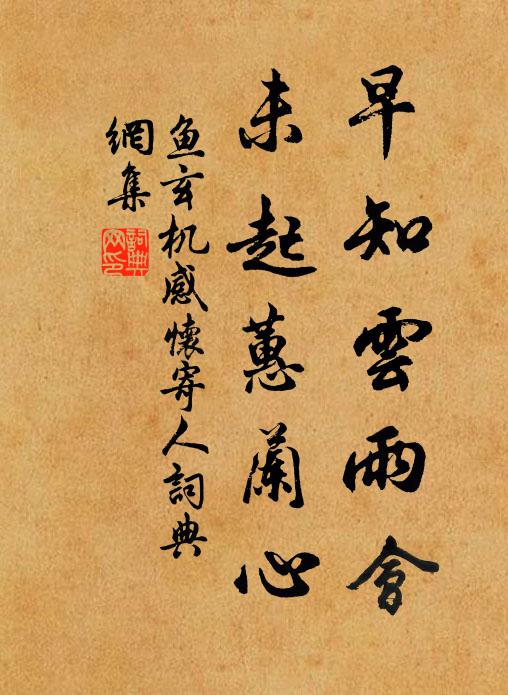 早知雲雨會
未起蕙蘭心
鱼玄机感懷寄人詞典
網集
詞典
网印